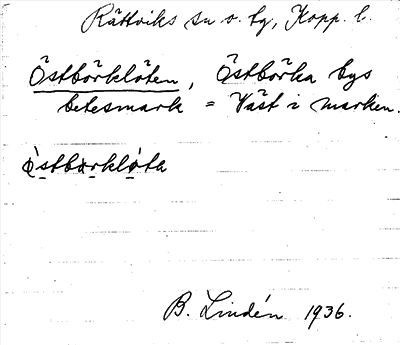 Rättviks sn o. tg, Kopp. l.
Östbörklöten, Östbörka bys
betesmark = Väst i marken.
östbörklöta
B. Lindén 1936.